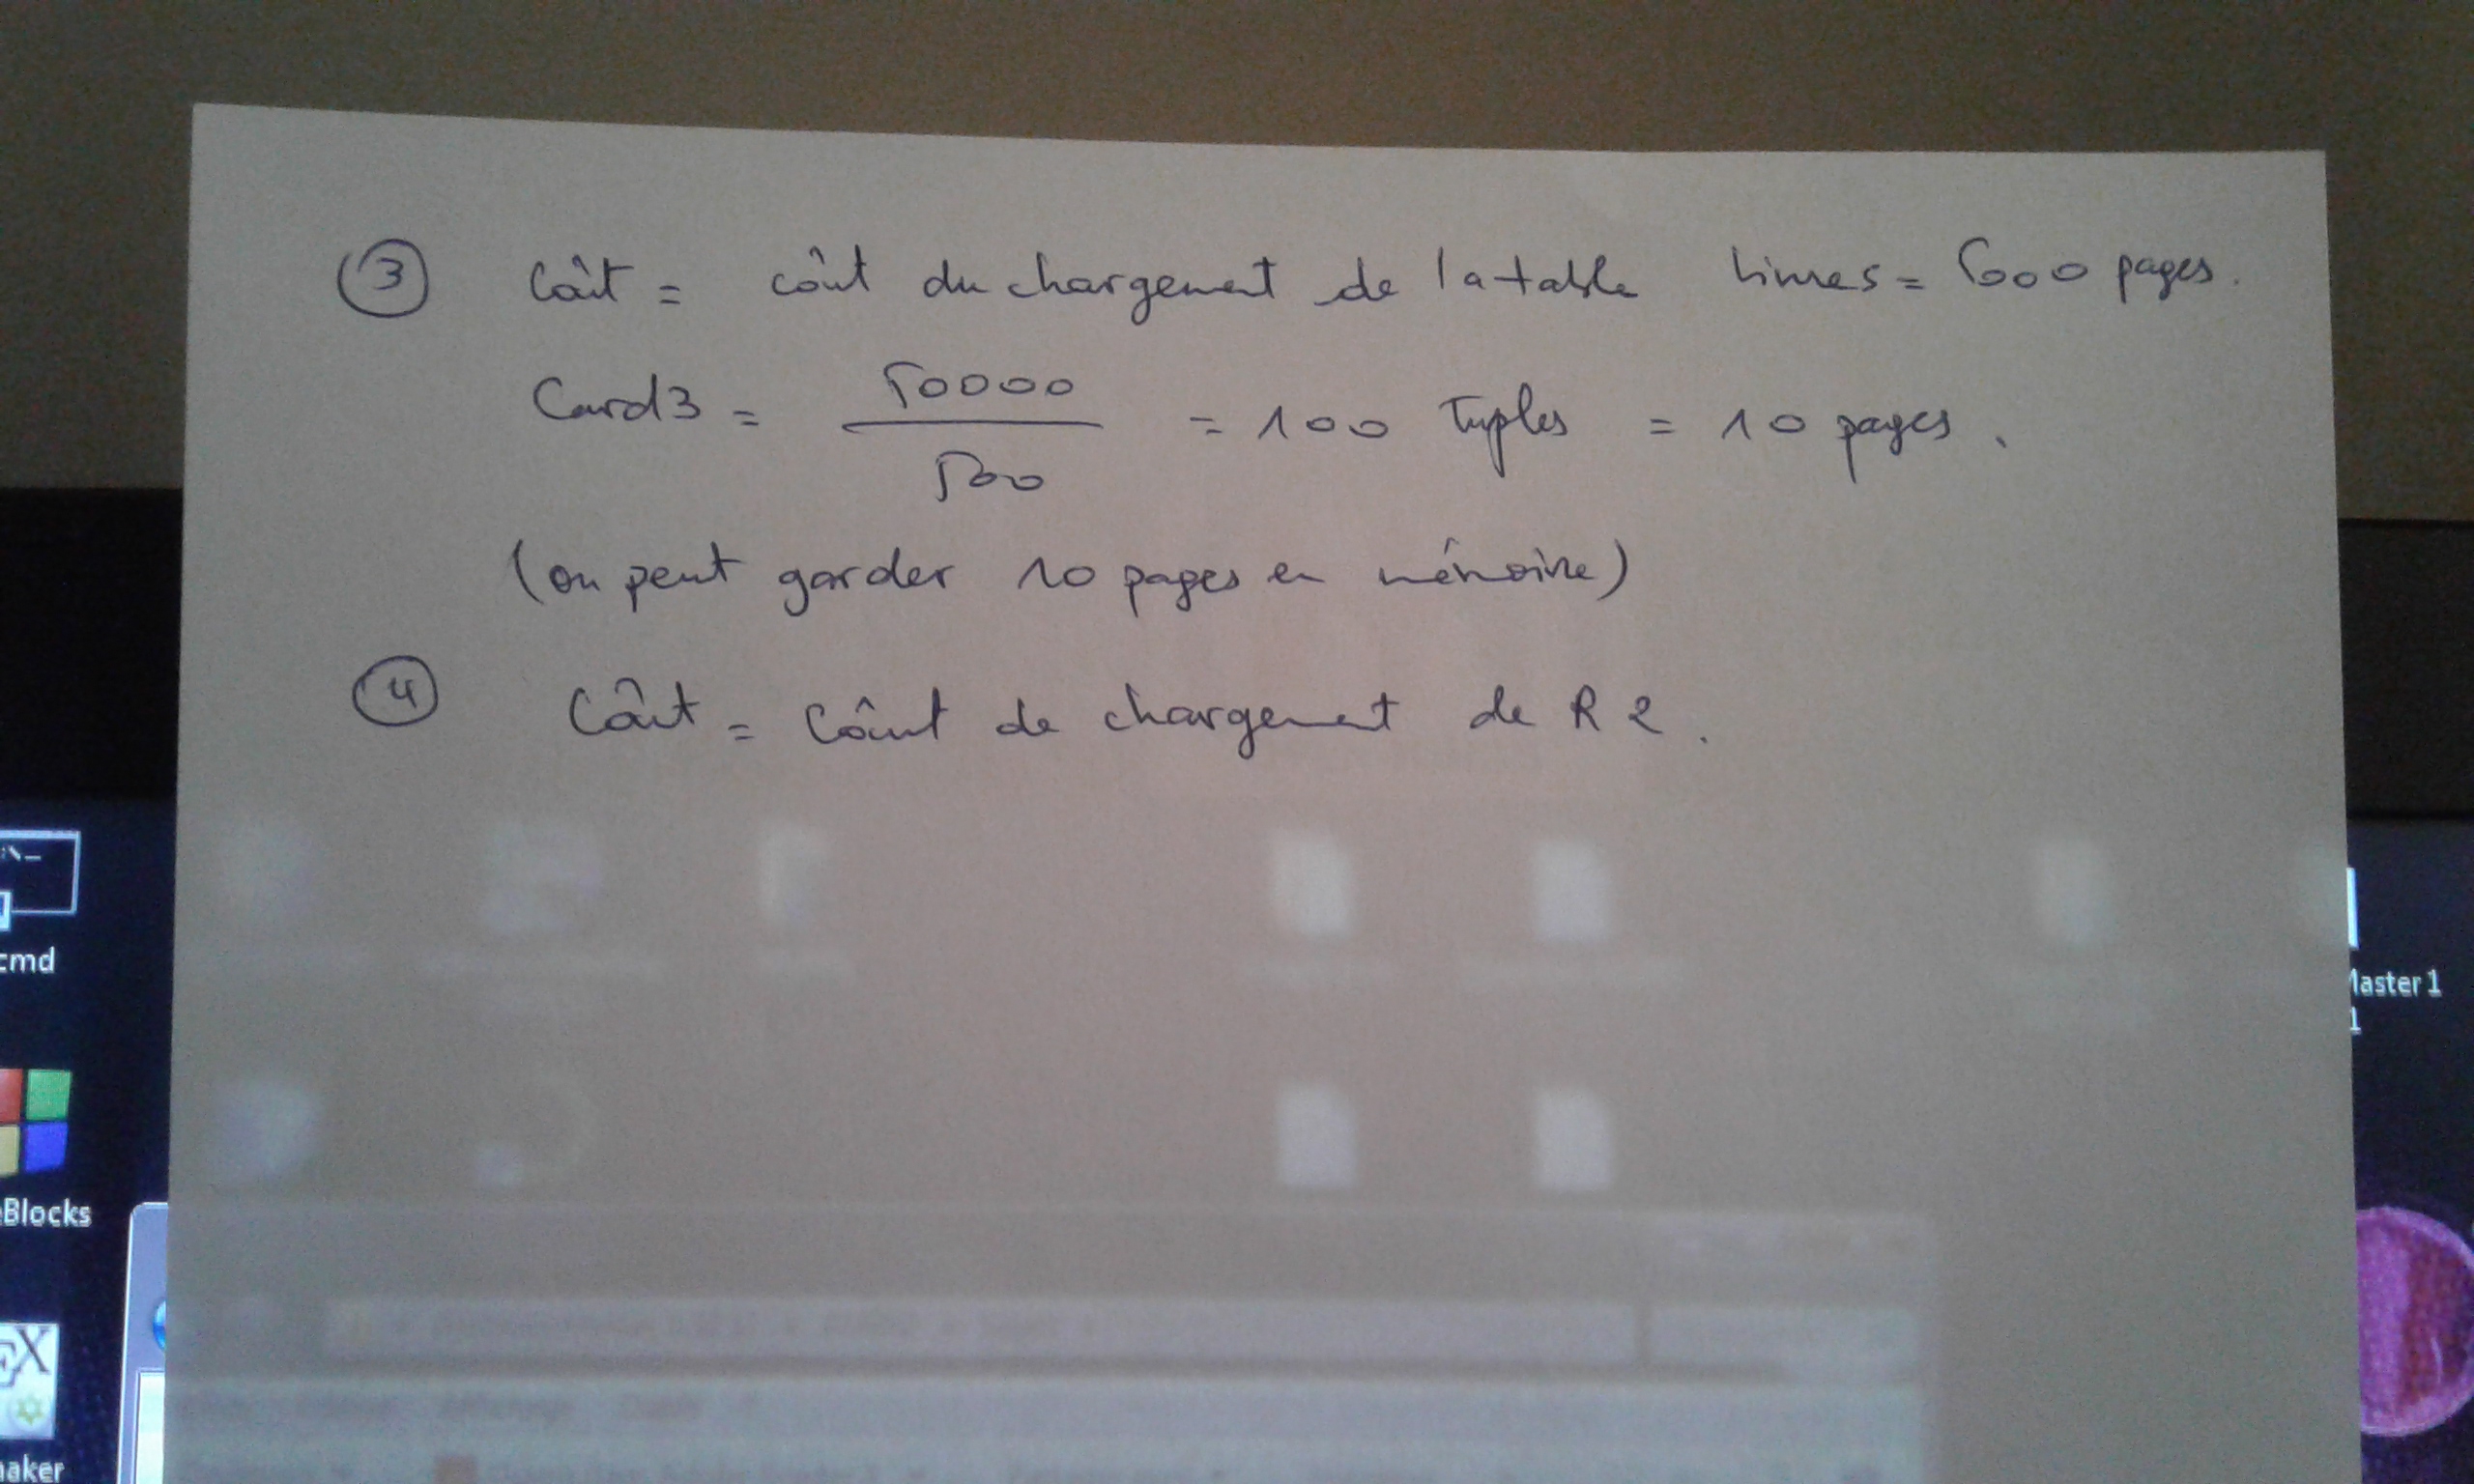 ③ Coût = coût du chargement de la table Livres = 5000 pages.
Card3 = 50000 / 500 = 100 tuples = 10 pages.
(on peut garder 10 pages en mémoire)
④ Coût = Coût de chargement de R2.
cmd
Master 1
1
Blocks
EX
maker